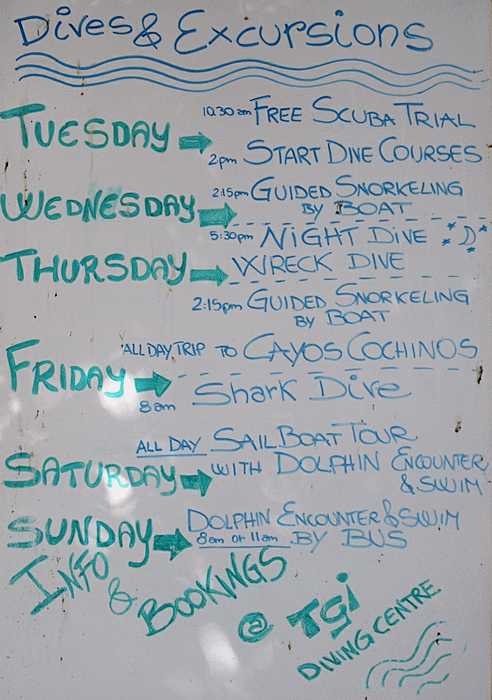 Dives & Excursions
10.30am FREE SCUBA TRIAL
TUESDAY
2pm START DIVE COURSES
2:15pm GUIDED SNORKELING
BY BOAT
WEDNESDAY
5:30pm NIGHT DIVE
THURSDAY WRECK DIVE
2:15pm GUIDED SNORKELING
BY BOAT
ALL DAY TRIP TO CAYOS COCHINOS
FRIDAY
8am Shark Dive
ALL DAY SAIL BOAT TOUR
SATURDAY WITH DOLPHIN ENCOUNTER
& SWIM
SUNDAY DOLPHIN ENCOUNTER & SWIM
8am or 11am BY BUS
INFO
& BOOKINGS
@ TGi
DIVING CENTRE